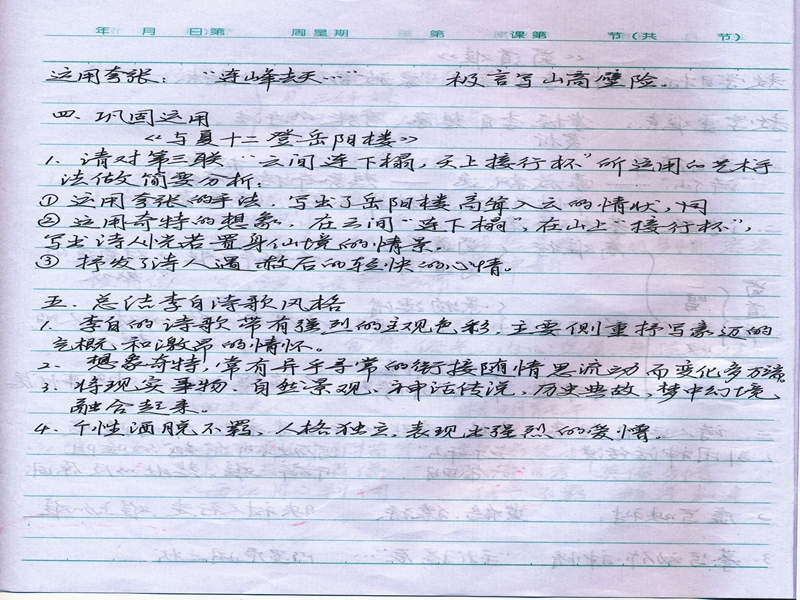 年 月 日第 周星期 第 课第 节(共 节)
运用夸张：“连峰去天……” 极言写山高壁险。
四、巩固运用
《与夏十二登岳阳楼》
1. 请对第三联“云间连下榻，天上接行杯”所运用的艺术手
法做简要分析：
① 运用夸张的手法，写出了岳阳楼高耸入云的情状，同
② 运用奇特的想象，在云间“连下榻”，在山上“接行杯”，
写出诗人恍若置身仙境的情景。
③ 抒发了诗人遇赦后的轻快的心情。
五、总结李白诗歌风格
1. 李白的诗歌带有强烈的主观色彩，主要侧重抒写豪迈的
气概和激昂的情怀。
2. 想象奇特，常有异乎寻常的衔接随情思流动而变化多万端。
3. 将现实事物、自然景观、神话传说，历史典故，梦中幻境，
融合起来。
4. 个性洒脱不羁，人格独立，表现出强烈的爱憎。